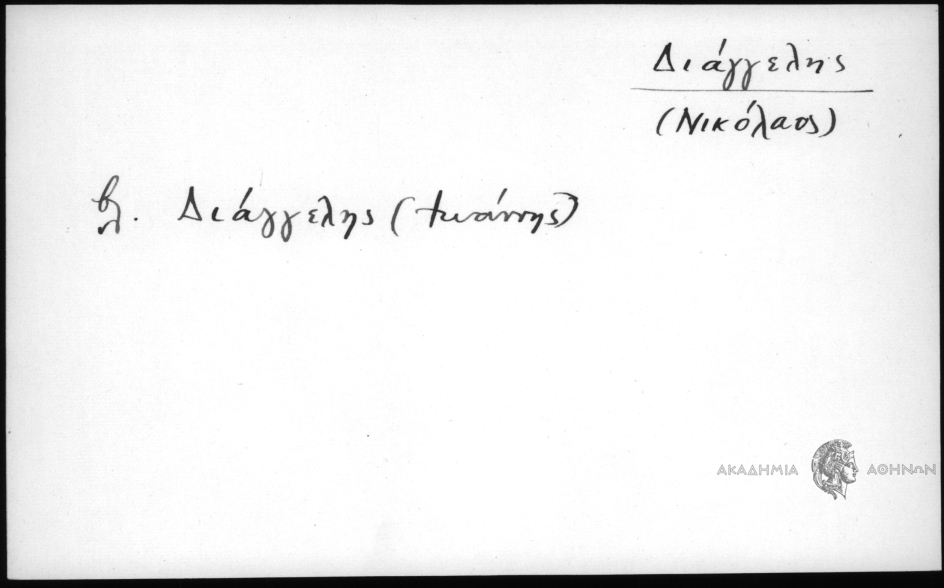 Διάγγελης
(Νικόλαος)
βλ. Διάγγελης (Ιωάννης)
ΑΚΑΔΗΜΙΑ ΑΘΗΝΩΝ